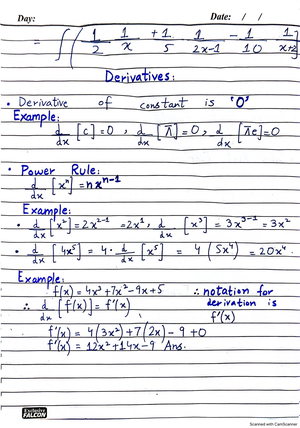 Day: Date: / /
= ∫∫ ( 1/2 1/x + 1/5 1/2x-1 - 1/10 1/x+2 )
Derivatives:
• Derivative of constant is "0",
Example:
d/dx [c] = 0 , d/dx [π] = 0 , d/dx [πe] = 0
• Power Rule:
d/dx [xⁿ] = nxⁿ⁻¹
Example:
• d/dx [x²] = 2x²⁻¹ = 2x¹ , d/dx [x³] = 3x³⁻¹ = 3x²
• d/dx [4x⁵] = 4 · d/dx [x⁵] = 4 (5x⁴) = 20x⁴.
Example:
f(x) = 4x³ + 7x² - 9x + 5 ∴ notation for
∴ d/dx [f(x)] = f'(x) derivation is
f'(x)
f'(x) = 4(3x²) + 7(2x) - 9 + 0
f'(x) = 12x² + 14x - 9 Ans.
Exclusive
FALCON
Scanned with CamScanner